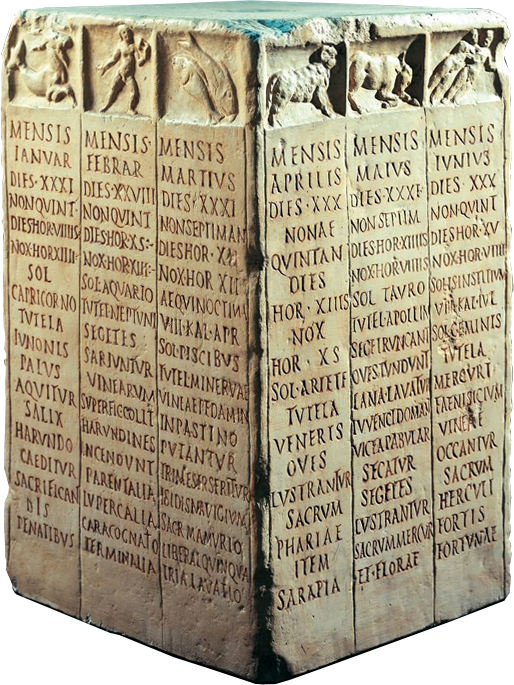 MENSIS
IANVAR
DIES·XXXI
NON·QVINT
DIES·HOR·VIIII
NOX·HOR·XIIII
SOL
CAPRICORNO
TVTELA
IVNONIS
PALVS
AQVITVR
SALIX
HARVNDO
CAEDITVR
SACRIFICAN
DIS
PENATIBVS
MENSIS·
FEBRAR
DIES·XXVIII
NON·QVINT
DIES·HOR·XS:·
NOX·HOR·XIII:·
SOL·AQVARIO
TVTEL·NEPTVNI
SEGETES
SARIVNTVR
VINEARVM
SVPERFIC·COLIT
HARVNDINES
INCENDVNT
PARENTALIA
LVPERCALIA
CARA·COGNATIO
TERMINALIA
MENSIS
MARTIVS
DIES·XXXI
NON·SEPTIMAN
DIES·HOR·XII
NOX·HOR XII
AEQVINOCTIVM
VIII·KAL·APR
SOL·PISCIBVS
TVTEL·MINERVAE
VINEAE·PEDAMIN
IN·PASTINO
PVTANTVR
SERITVR
ISIDIS·NAVIGIVM
SACR·MAMVRIO
LIBERAL·QVINQVA
TRIA·LAVATIO
MENSIS
APRILIS
DIES·XXX
NONAE
QVINTAN
DIES
HOR·XIIIS
NOX
HOR·XS
SOL·ARIETE
TVTELA
VENERIS
OVES
LVSTRANTVR
SACRVM
PHARIAE
ITEM
SARAPIA
MENSIS
MAIVS
DIES·XXXI·
NON SEPTIM
DIES·HOR·XIIIIS
NOX·HOR·VIIIIS
SOL TAVRO
TVTEL·APOLLIN
SEGET·RVNCANT
OVES·TVNDVNT
LANA·LAVATVR
IVVENCI·DOMAN
VICEA·PABVLAR
SECATVR
SEGETES
LVSTRANTVR
SACRVM·MERCVR
ET·FLORAE
MENSIS
IVNIVS
DIES·XXX
NON·QVINT
DIES·HOR·XV
NOX·HOR·VIIII
SOLIS·INSTITIVM
VIII·KAL·IVL
SOL·GEMINIS
TVTELA
MERCVRI
FAENISICIVM
VINEAE
OCCANTVR
SACRVM
HERCVLI
FORTIS
FORTVNAE